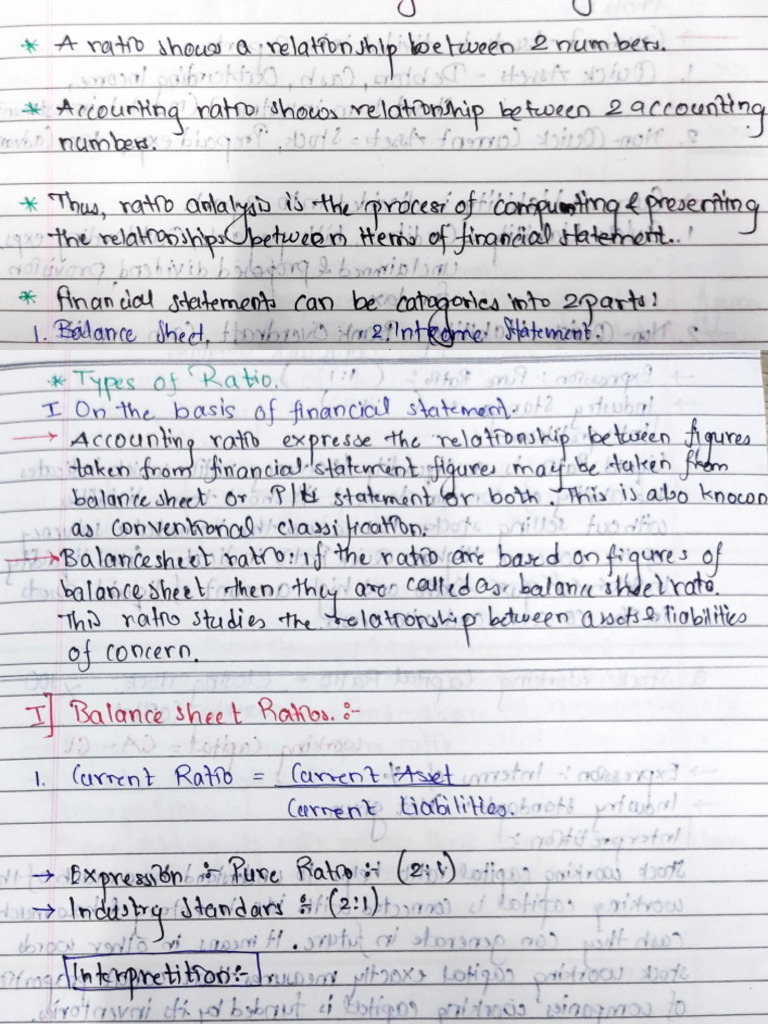 * A ratio shows a relationship between 2 numbers.
* Accounting ratio shows relationship between 2 accounting
numbers.
* Thus, ratio analysis is the process of computing & presenting
the relationships between items of financial statement.
* financial statements can be catagories into 2 parts:
1. Balance sheet, 2. Income Statement.
* Types of Ratio.
I On the basis of financial statement.
→ Accounting ratio expresse the relationship between figures
taken from financial statement figures may be taken from
balance sheet or P/L statement or both. This is also known
as conventional classification.
→ Balance sheet ratio: if the ratio are based on figures of
balance sheet then they are called as balance sheet rato.
This ratio studies the relationship between assets & liabilities
of concern.
I] Balance sheet Ratios. :-
1. Current Ratio = Current Asset
Current Liabilities.
→ Expression :- Pure Ratio :- (2:1)
→ Industry Standars :- (2:1)
Interpretition:-